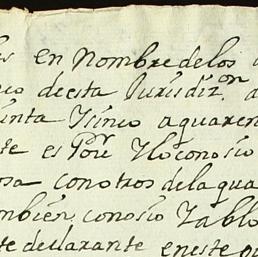 en nombre de los
co desta Jurisdizon
inta Icinco a quaren
te es Por Yloconosio
osa con otros de la qua
mbien, conosio Pablo
te declarante en este